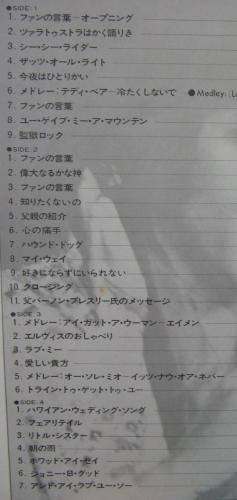 ●SIDE:1
1. ファンの言葉―オープニング
2. ツァラトゥストラはかく語りき
3. シー・シー・ライダー
4. ザッツ・オール・ライト
5. 今夜はひとりかい
6. メドレー：テディ・ベア―冷たくしないで ●Medley:
7. ファンの言葉
8. ユー・ゲイブ・ミー・ア・マウンテン
9. 監獄ロック
●SIDE:2
1. ファンの言葉
2. 偉大なるかな神
3. ファンの言葉
4. 知りたくないの
5. 父親の紹介
6. 心の痛手
7. ハウンド・ドッグ
8. マイ・ウェイ
9. 好きにならずにいられない
10. クロージング
11. 父バーノン・プレスリー氏のメッセージ
●SIDE 3
1. メドレー：アイ・ガット・ア・ウーマン―エイメン
2. エルヴィスのおしゃべり
3. ラブ・ミー
4. 愛しい貴方
5. メドレー：オー・ソレ・ミオ―イッツ・ナウ・オア・ネバー
6. トライン・トゥ・ゲット・トゥ・ユー
●SIDE 4
1. ハワイアン・ウェディング・ソング
2. フェアリテイル
3. リトル・シスター
4. 朝の雨
5. ホワッド・アイ・セイ
6. ジョニー・B・グッド
7. アンド・アイ・ラブ・ユー・ソー